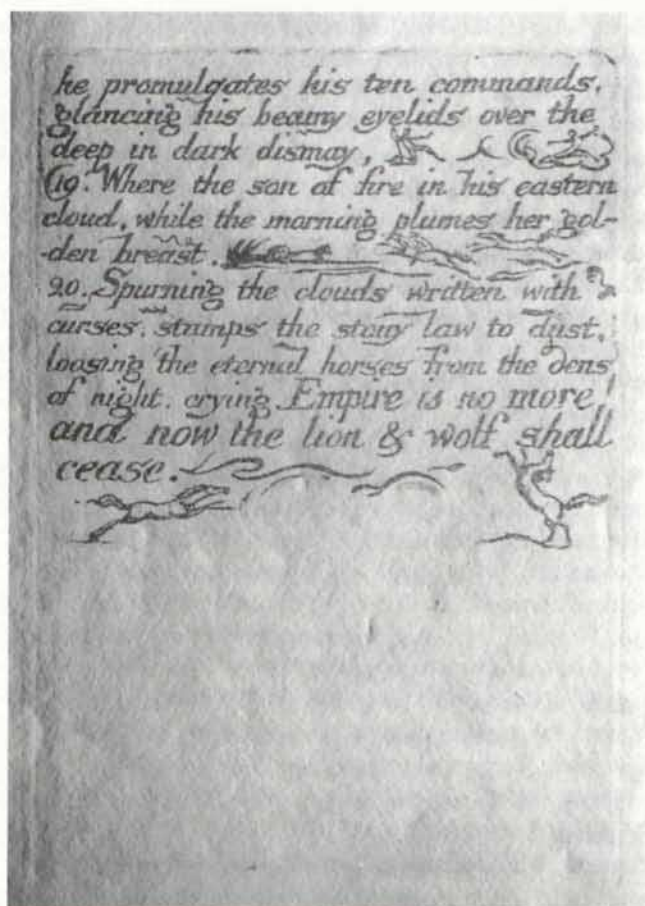 he promulgates his ten commands,
glancing his beamy eyelids over the
deep in dark dismay,
19. Where the son of fire in his eastern
cloud, while the morning plumes her gol-
-den breast.
20. Spurning the clouds written with
curses, stamps the stony law to dust,
loosing the eternal horses from the dens
of night, crying Empire is no more!
and now the lion & wolf shall
cease.